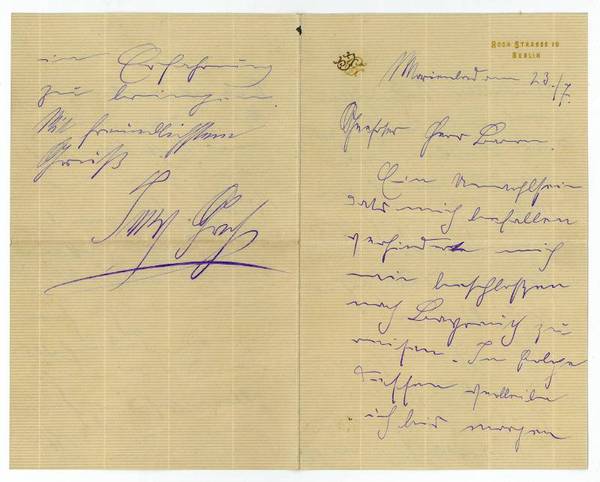 ROON STRASSE 10
BERLIN
Marienbad am 23./7.
Geehrter Herr Baron.
Ein Unwohlsein
dass mich befallen
verhindert mich
wie beschloßen
nach Bayreuth zu
reisen. In Folge
dessen verbleibe
ich bis morgen
in Erfahrung
zu bringen.
Mit freundlichstem
Gruß